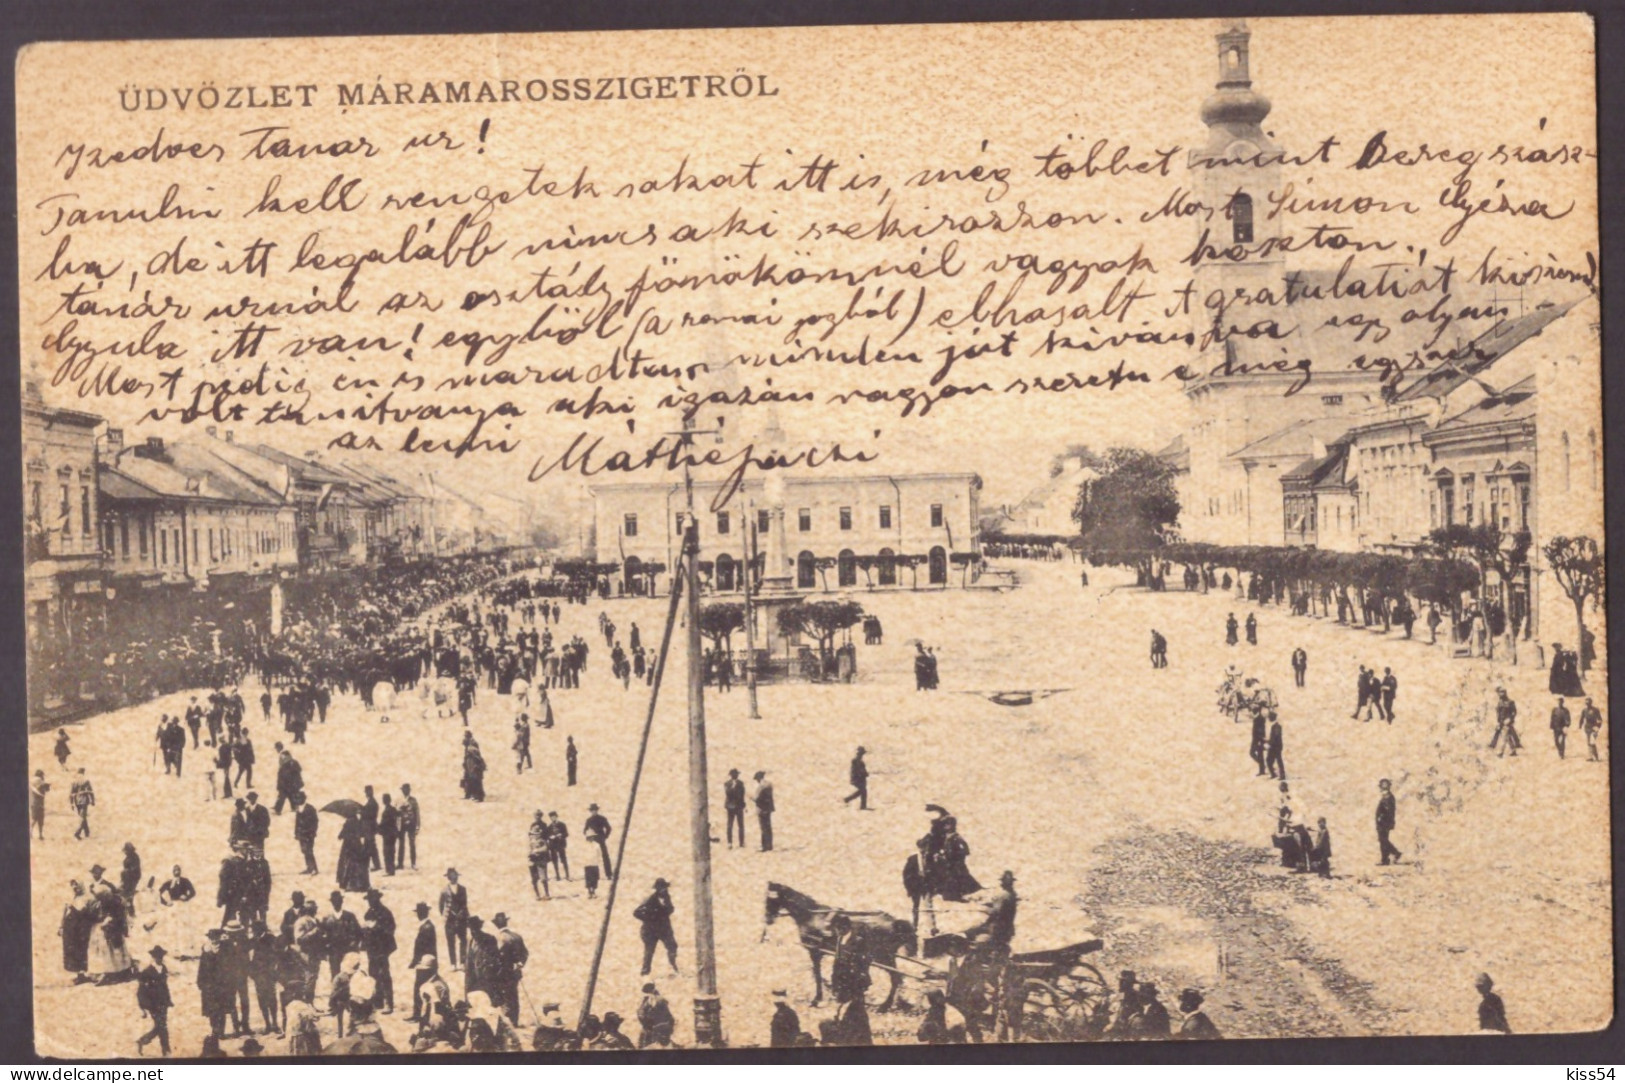 ÜDVÖZLET MÁRAMAROSSZIGETRŐL
Kedves tanár ur!
Tanulni kell rengetek sokat itt is, még többet mint Beregszász-
ba, de itt legalább nincs aki szekirozzon. Most Simon Gyéza
tánár urnál az osztály főnökömnél vagyok koszton.
Gyula itt van! egyből (a római jogból) elhasalt. A gratulatiót köszönöm
Most pedig én is maradtam minden jót kivánva egy olyan
volt tanitványa aki igazán nagyon szeretne még egyszer
az lenni
Máthé Juczi
delcampe.net
kiss54